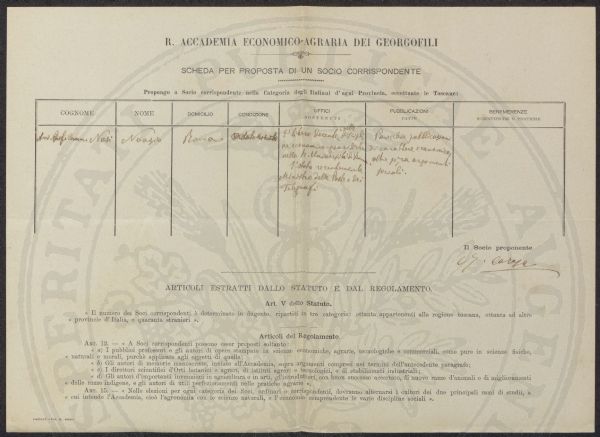 R. ACCADEMIA ECONOMICO-AGRARIA DEI GEORGOFILI
SCHEDA PER PROPOSTA DI UN SOCIO CORRISPONDENTE
Propongo a Socio corrispondente nella Categoria degli Italiani d'ogni Provincia, eccettuate le Toscane:
COGNOME NOME DOMICILIO CONDIZIONE UFFICI SOSTENUTI PUBBLICAZIONI FATTE BENEMERENZE
Nasi Nunzio Roma
Ministro delle Poste e dei
Telegrafi
Parecchie pubblicazioni
di carattere economico,
sociali.
Il Socio proponente
ARTICOLI ESTRATTI DALLO STATUTO E DAL REGOLAMENTO.
Art. V dello Statuto.
« Il numero dei Soci corrispondenti è determinato in dugento, ripartiti in tre categorie: ottanta appartenenti alle regione toscana, ottanta ad altre
« provincie d'Italia, e quaranta stranieri ».
Articoli del Regolamento.
ART. 12. — « A Soci corrispondenti possono esser proposti soltanto:
« a) I pubblici professori e gli autori di opere stampate in scienze economiche, agrarie, tecnologiche e commerciali, come pure in scienze fisiche,
« naturali e morali, purchè applicate agli oggetti di quelle;
« b) Gli autori di memorie manoscritte, inviate all'Accademia, sopra argomenti compresi nei termini dell'antecedente paragrafo;
« c) I direttori scientifici d'Orti botanici e agrari, di istituti agrari e tecnologici, e di stabilimenti industriali;
« d) Gli autori d'importanti invenzioni in agricoltura e in arti, gl'introduttori, con buon successo accertato, di nuove razze d'animali e di miglioramenti
« delle razze indigene, e gli autori di utili perfezionamenti nelle pratiche agrarie ».
ART. 15. — « Nelle elezioni per ogni categoria dei Soci, ordinari e corrispondenti, dovranno alternarsi i cultori dei due principali rami di studii,
« cui intende l'Accademia, cioè l'agronomia con le scienze naturali, e l'economia comprendente le varie discipline sociali ».